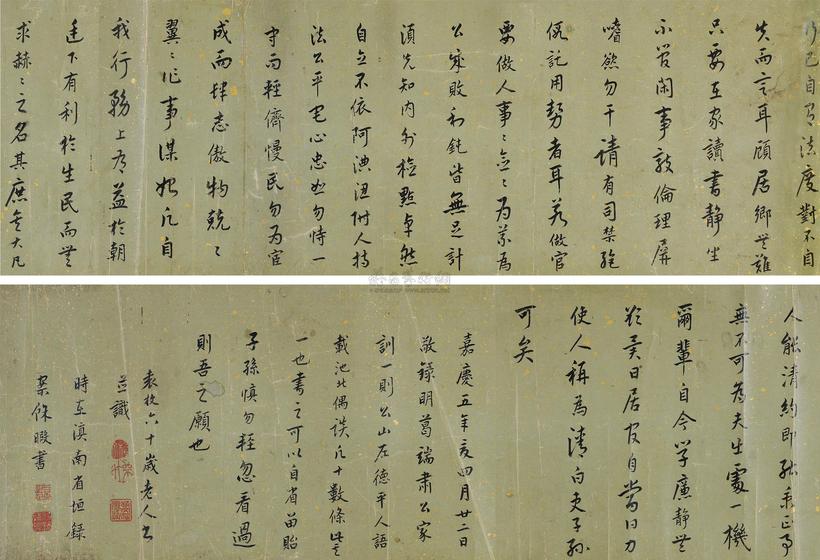 自有法度對不自
失而言耳顧居鄉無難
只要在家讀書靜坐
不管閑事敦倫理屏
嗜慾勿干請有司禁絕
假託用勢者耳若做官
要做人事々念々為為
公成敗利鈍皆無足計
須先知內外檢點卓然
自立不依阿淟涊附人持
法公平宅心忠恕勿恃一
守而輕儕慢民勿為官
成而肆志傲物兢々
翼々作事謀始凡自
我行務上有益於朝
廷下有利於生民而無
求赫々之名其庶矣大凡
人能清約即能秉正
無不可為夫生處一機
爾輩自今學廉靜無
欲異日居官自當日力
使人稱為清白吏子孫
可矣
嘉慶五年亥四月廿二日
敬錄明葛端肅公家
訓一則公山左德平人語
載池北偶談凡十數條此其
一也書之可以自省留貽
子孫慎勿輕忽看過
則吾之願也
六十歲老人書
並識
時在滇南省垣錄
案條暇書